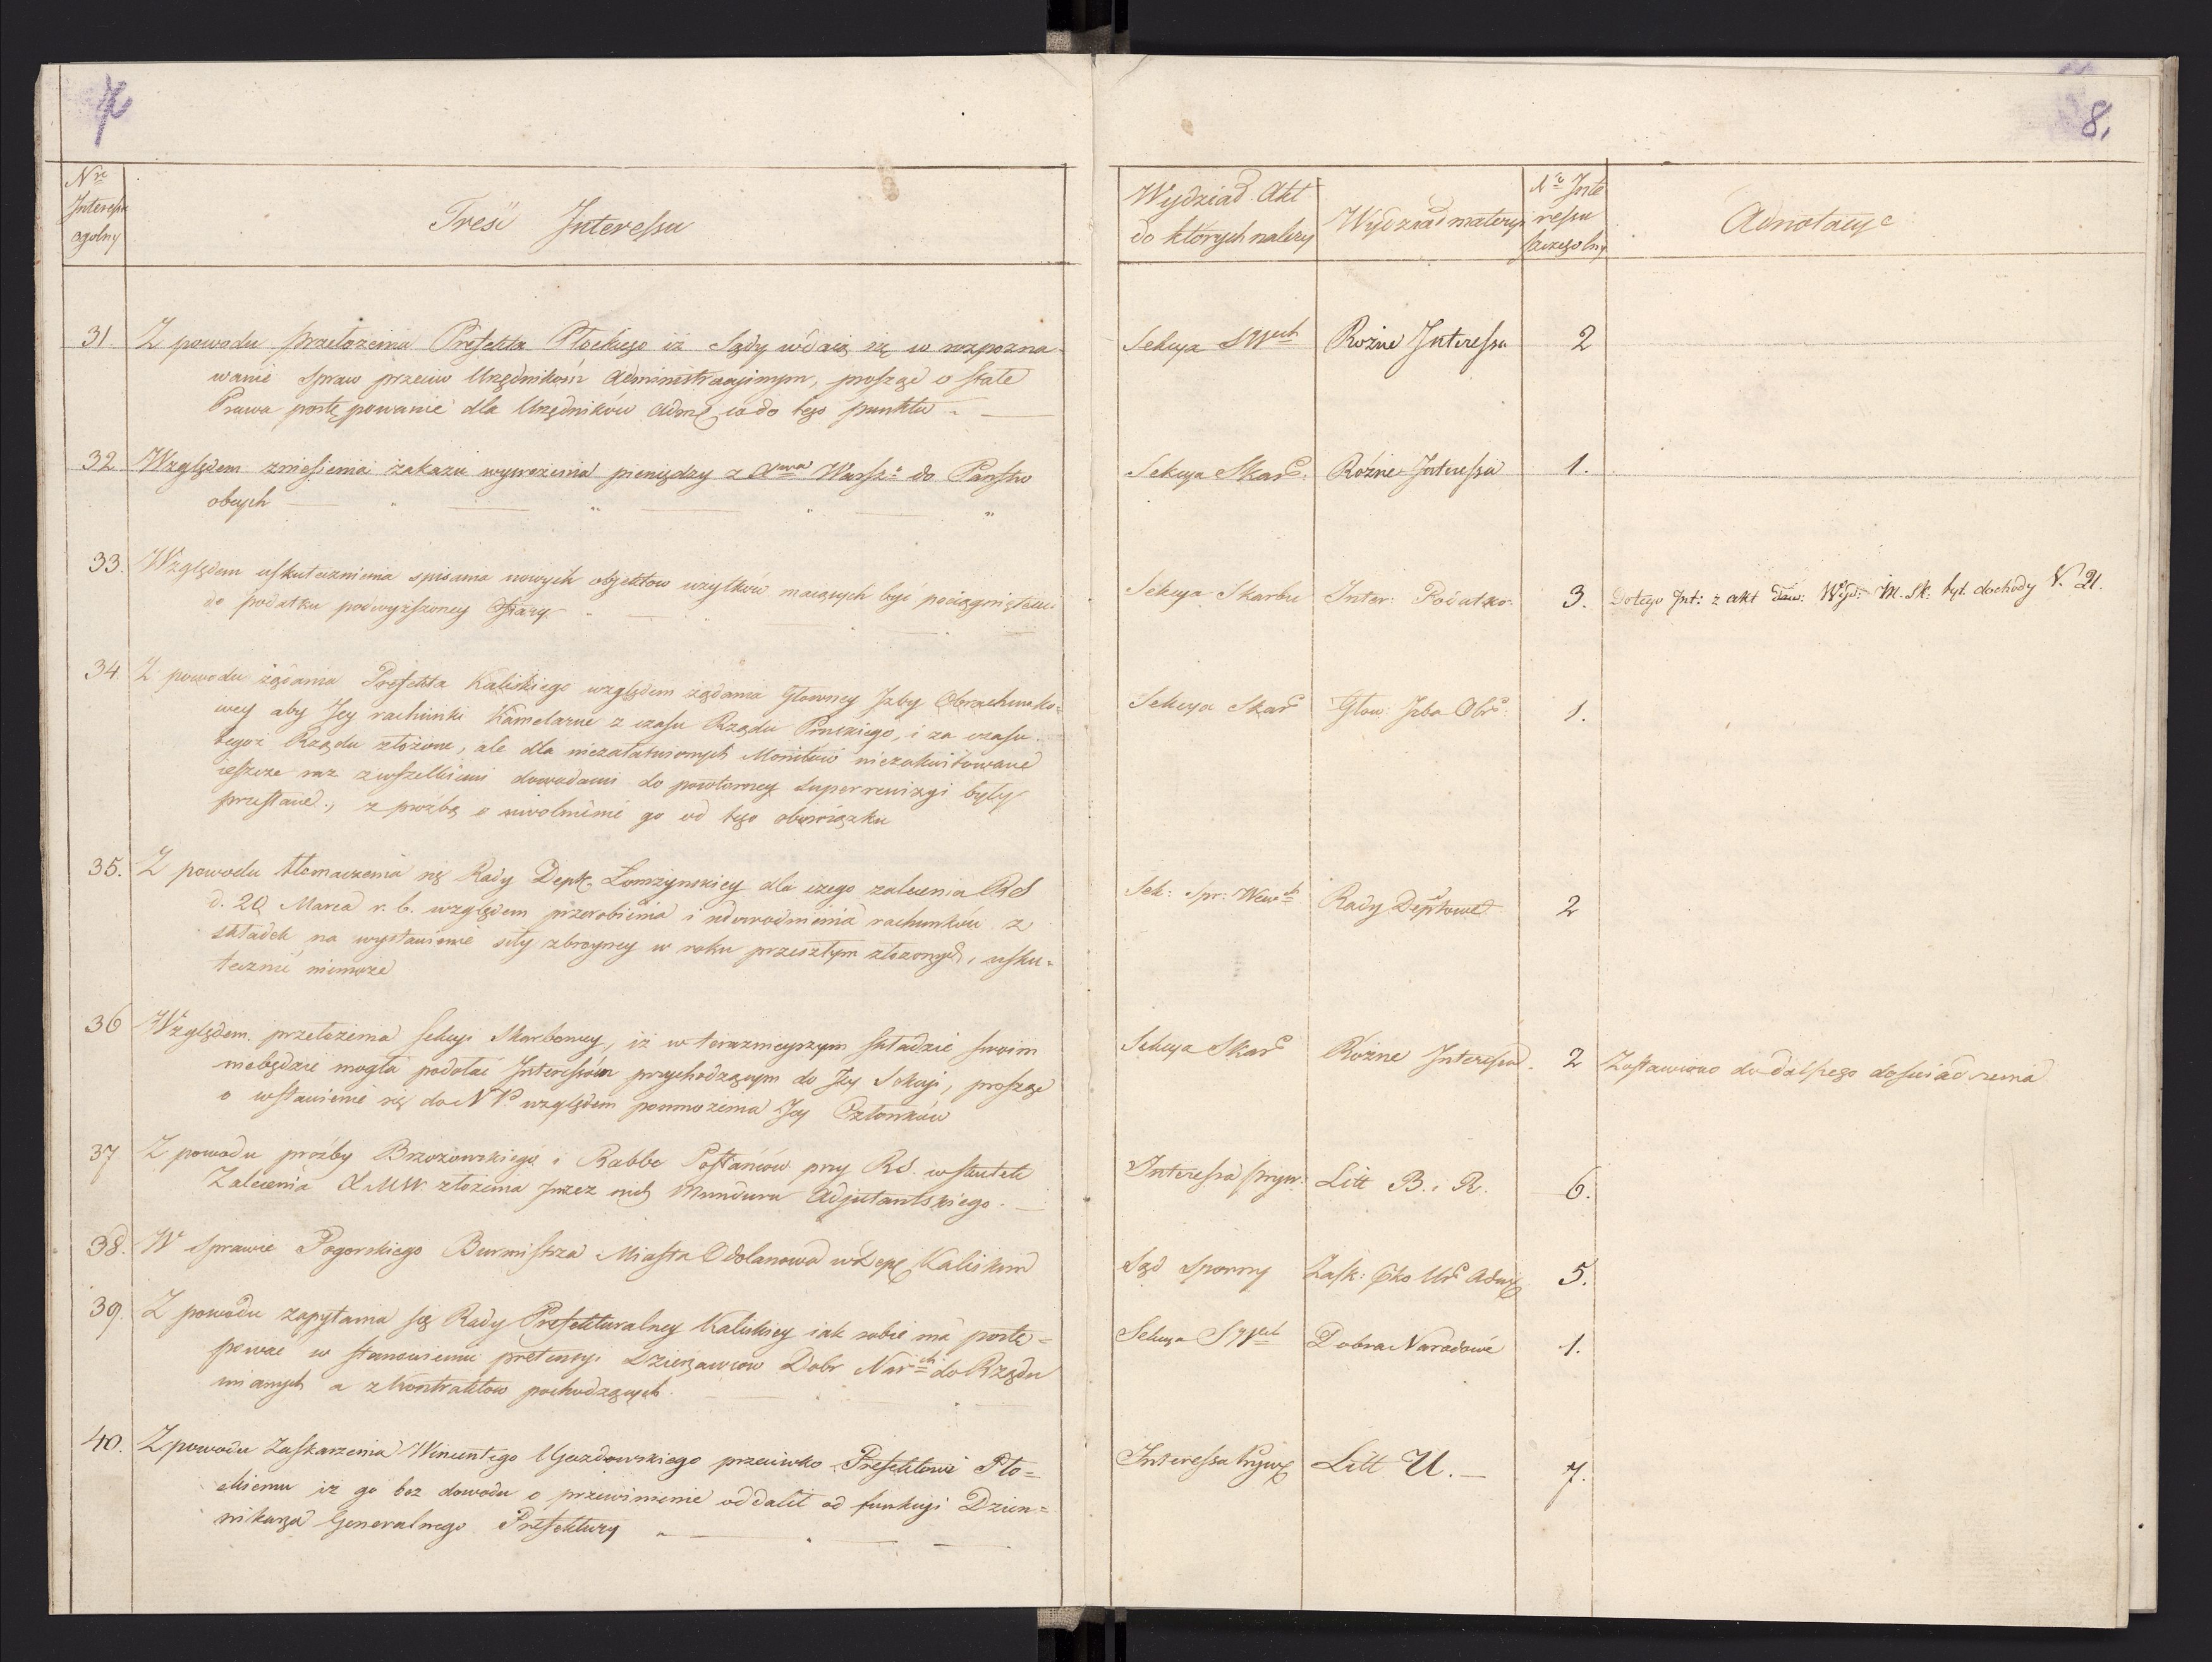 8.
Nro
Interessu
ogolny
Treść Interessu
Wydział Akt
do których należy
Wydział materyi
Nro Inte
ressu
szczegolny
Adnotacye
31. Z powodu przełożenia Prefekta Płockiego iż Sądy wdaią się w rozpozna
wanie spraw przeciw Urzędnikom Administracyinym, prosząc o stałe
Prawa postępowanie dla Urzędników co do tego punktu
Sekcya SWych Rożne Interessa 2
32 Względem zniesienia zakazu wywożenia pieniędzy z Xtwa Warszo do Państw
obcych
Sekcya Skar: Rożne Interessa 1.
33. Względem uskutecznienia spisania nowych objektow użytków maiących być pociągniętemi
do podatku podwyższoney Ofiary
Sekcya Skarbu Inter: Podatko: 3. Do tego Int: z akt daw: Wyd: M. Sk: tyt. dochody N. 21.
34. Z powodu żądania Prefekta Kaliskiego względem żądania Głowney Izby Obrachunko=
wey aby Jey rachunki Kameralne z czasu Rządu Pruskiego, i za czasu
tegoż Rządu złożone, ale dla niezałatwionych Monitow niezakwitowane
ieszcze raz z wszelkiemi dowodami do powtorney Superrewizyi były
przesłane, z proźbą o uwolnienie go od tego obowiązku
Sekcya Skar Głow: Izba Obr: 1.
35. Z powodu tłomaczenia się Rady Dept. Łomżynskiey dla czego zalecenia RS
d. 20 Marca r. b. względem przerobienia i udowodnienia rachunków z
składek na wystawienie siły zbroyney w roku przeszłym złożonych, usku=
tecznić niemoże
Sek: Spr: Wew Rady Deptowe 2
36 Względem przełożenia Sekcyi Skarbowey, iż w teraznieyszym składzie swoim
niebędzie mogła podołać Interessom przychodzącym do Jey Sekcyi, prosząc
o wstawienie się do NP. względem pomnożenia Jey Członków
Sekcya Skar Rożne Interessa 2 Zostawiono do dalszego doświadczenia
37 Z powodu proźby Brzozowskiego i Rabbe Posłańców przy RS. w skutek
Zalecenia złożenia przez nich Munduru Adjutantskiego.
Interessa pryw: Litt B. i R. 6.
38. W sprawie Pogorskiego Burmistrza Miasta Odolanowa w Dep Kaliskim
Sąd Sporny Zask: Pko Ur Admi 5.
39. Z powodu zapytania się Rady Prefekturalney Kaliskiey iak sobie ma postę=
pować w stanowieniu pretensyi Dzierżawcow Dobr Narch do Rządu
mianych a z kontraktow pochodzących
Sekcya SWych Dobra Narodowe 1.
40. Z powodu Zaskarzenia Wincentego Ujazdowskiego przeciwko Prefektowi Pło=
ckiemu iż go bez dowodu o przewinienie oddalił od funkcyi Dzien=
nikarza Generalnego Prefektury
Interessa Pryw Litt U. 7.